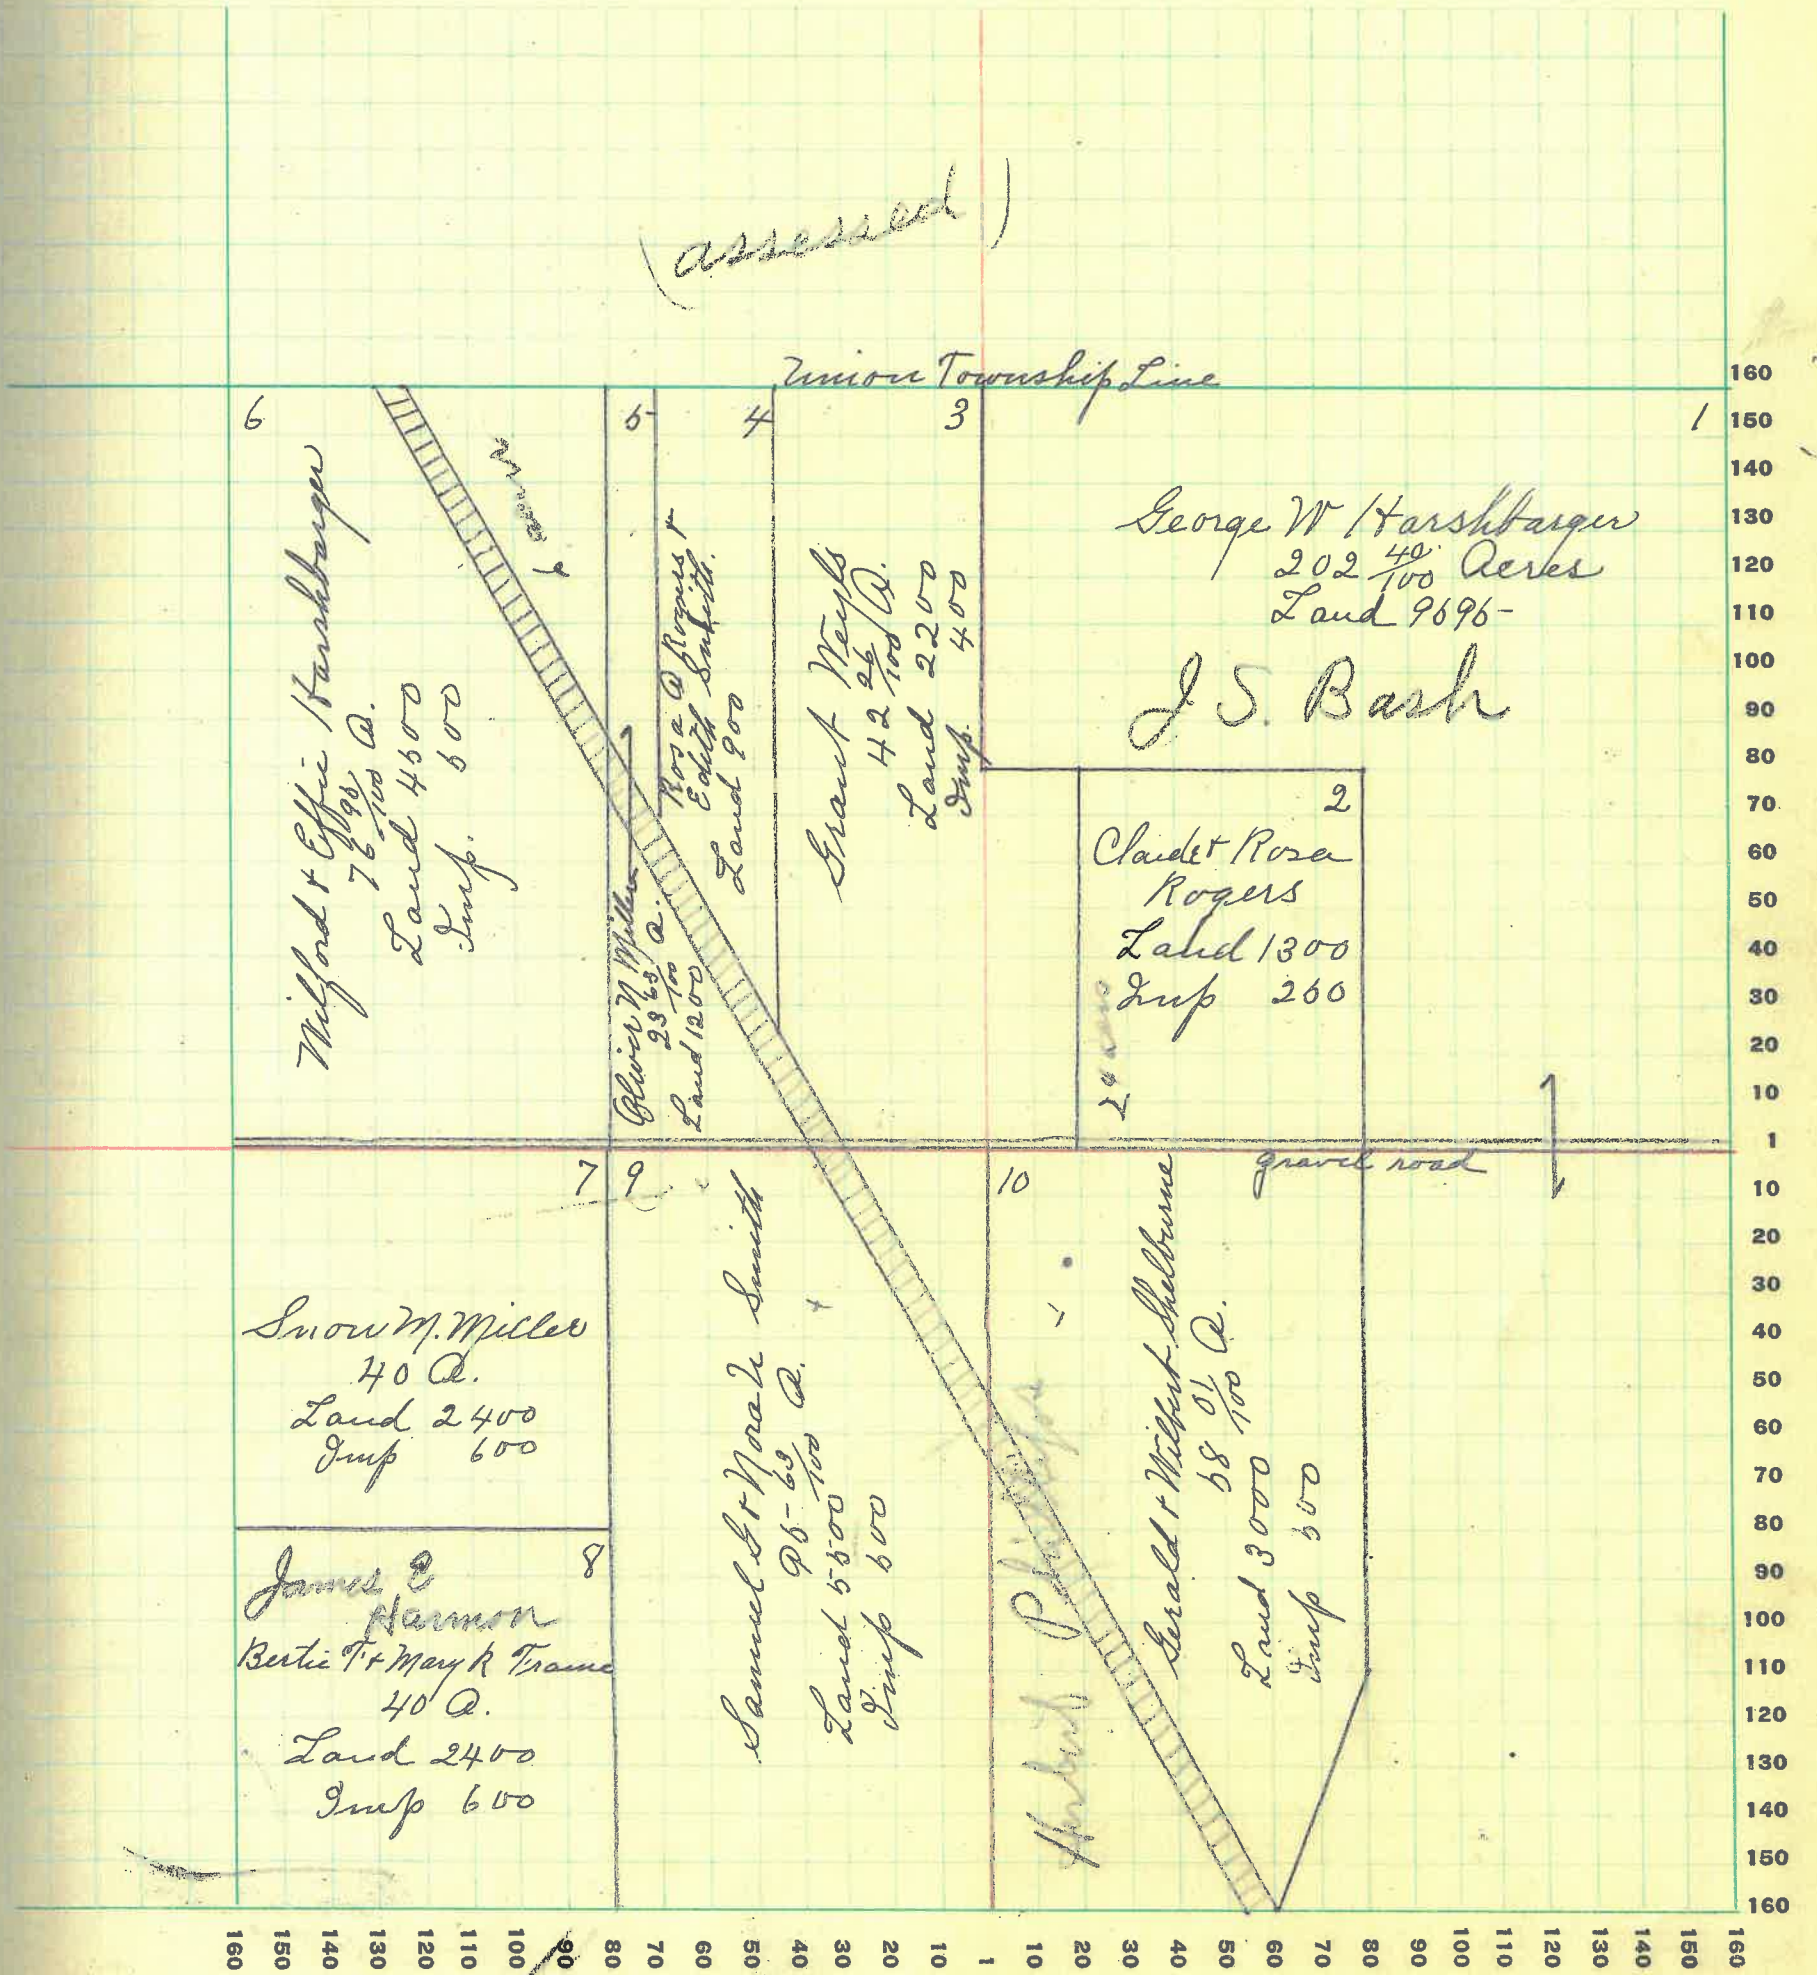 (assessed)
Union Township Line
6
5
4
3
1
Wilford & Effie Harshbarger
76 95/100 A.
Land 4500
Imp. 500
Oliver N Miller
23 63/100 A.
Land 1200
Rosa A Rogers &
Edith Smith.
Land 900
Grant Weyls
42 26/100 A.
Land 2200
Imp. 400
George W Harshbarger
202 40/100 Acres
Land 9595-
J. S. Bash
2
Claude & Rosa
Rogers
Land 1300
Imp 250
gravel road
7
9
10
Snow M. Miller
40 A.
Land 2400
Imp 600
8
James E
Harmon
Bertie T & Mary K Frame
40 A.
Land 2400
Imp 600
Samuel G & Nora U Smith
95-63/100 A.
Land 5500
Imp 500
Gerald & Wilbert Shelburne
58 01/100 A.
Land 3000
Imp 500
160
150
140
130
120
110
100
90
80
70
60
50
40
30
20
10
1
10
20
30
40
50
60
70
80
90
100
110
120
130
140
150
160
160 150 140 130 120 110 100 90 80 70 60 50 40 30 20 10 1 10 20 30 40 50 60 70 80 90 100 110 120 130 140 150 160